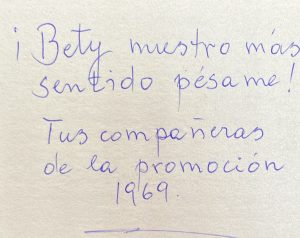 ¡ Bety nuestro más
sentido pésame!
Tus compañeras
de la promoción
1969.